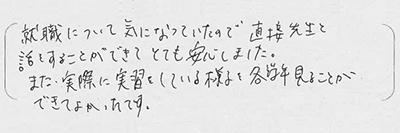 就職について気になっていたので直接先生と
話をすることができてとても安心しました。
また、実際に実習をしている様子を各学年見ることが
できてよかったです。